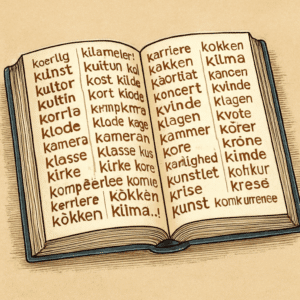 koerlig
kulst
kultor
kultin
korrla
klode
kamera
klasse
kirke
kompeerlee komie
kerriere
kökken
kilameler!
kuitun kol
kost kilde
kort klode
klode kage
kameran
klasse kus
kirke kore
kökken
Kilma..!
karriere
kakken
koncert
kvinde
klagen
kammer
kore
kærlighed
kunstlet
krise
kunst komkurrenee
kokken
kilma
kancen
kvinde
klagen
kvote
körer
kröne
kimde
kohkur
kresø